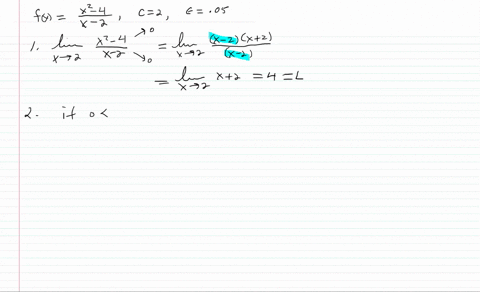 f(x) = x²-4 / x-2 , c=2, ε=.05
1. lim x→2 x²-4 →0 / x-2 →0 = lim x→2 (x-2)(x+2) / (x-2)
= lim x→2 x+2 = 4 = L
2. if 0<